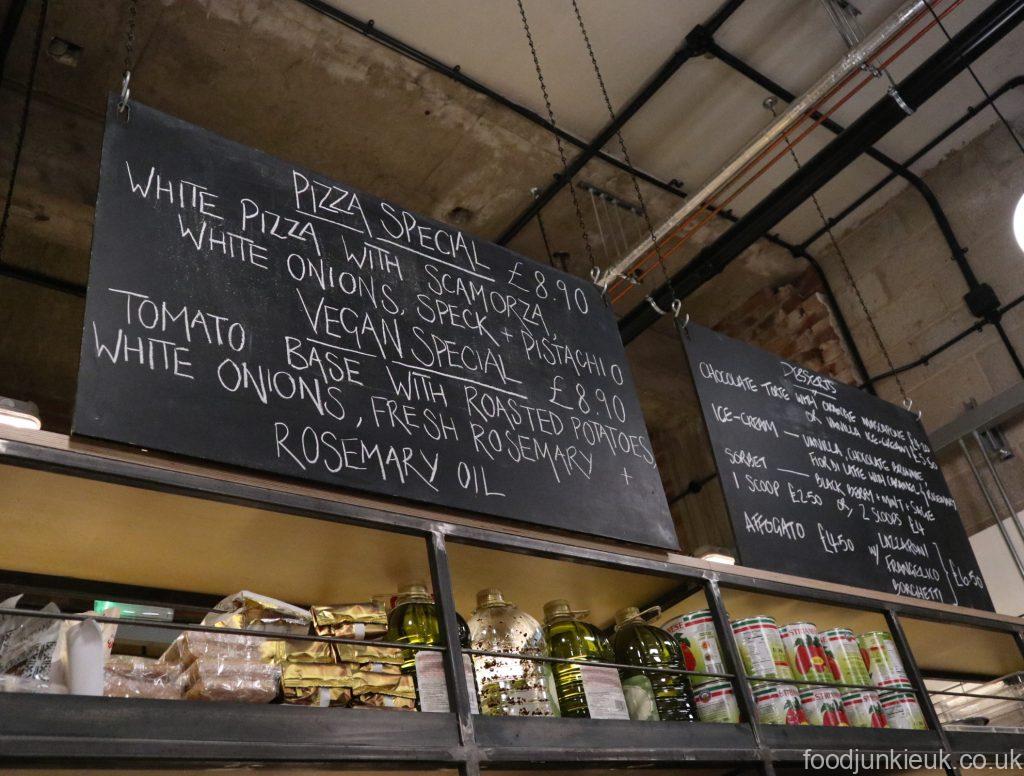 PIZZA SPECIAL £8.90
WHITE PIZZA WITH SCAMORZA,
WHITE ONIONS, SPECK + PISTACHIO
VEGAN SPECIAL £8.90
TOMATO BASE WITH ROASTED POTATOES,
WHITE ONIONS, FRESH ROSEMARY +
ROSEMARY OIL
DESSERTS
CHOCOLATE TORTE WITH ORANGE MASCARPONE
OR VANILLA ICE-CREAM
ICE-CREAM — VANILLA, CHOCOLATE BROWNIE
FIOR DI LATTE WITH ORANGE + ROSEMARY
SORBET — BLACKBERRY + MINT + SAUCE
1 SCOOP £2.50 OR, 2 SCOOPS £4
AFFOGATO £4.50 W/ LAZZARONI
FRANGELICO
BORGHETTI
£6.50
foodjunkieuk.co.uk